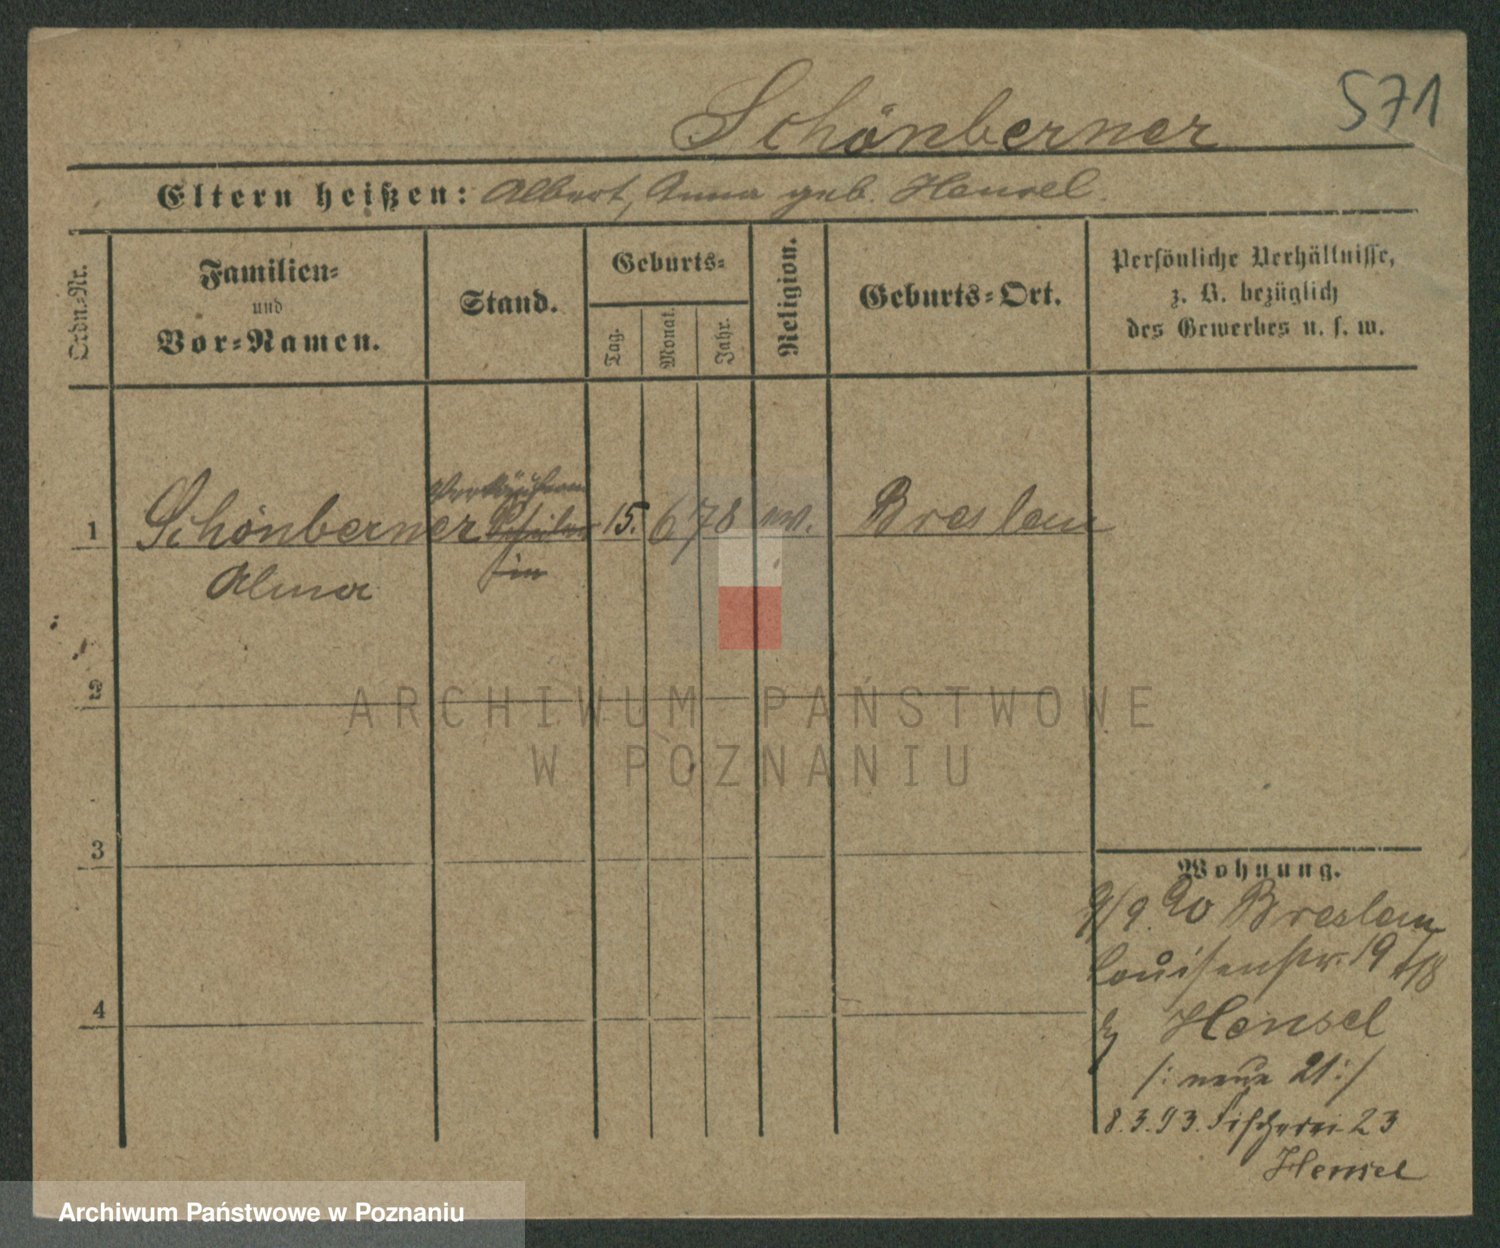 571
Schönberner
Eltern heißen: Albert, Anna geb. Hensel.
Ordn.-Nr.
Familien-
und
Vor-Namen.
Stand.
Geburts-
Tag.
Monat.
Jahr.
Religion.
Geburts-Ort.
Persönliche Verhältnisse,
z. B. bezüglich
des Gewerbes u. s. w.
Verkäuferin
1 Schönberner Schüler 15. 6 78 Breslau
Alma in
2
ARCHIWUM PAŃSTWOWE
W POZNANIU
3
Wohnung.
9/9. 90 Breslau
Louisenstr. 19
Hensel
/: neue 21 :/
8.3.93. Fischerei 23
Hensel
4
Archiwum Państwowe w Poznaniu